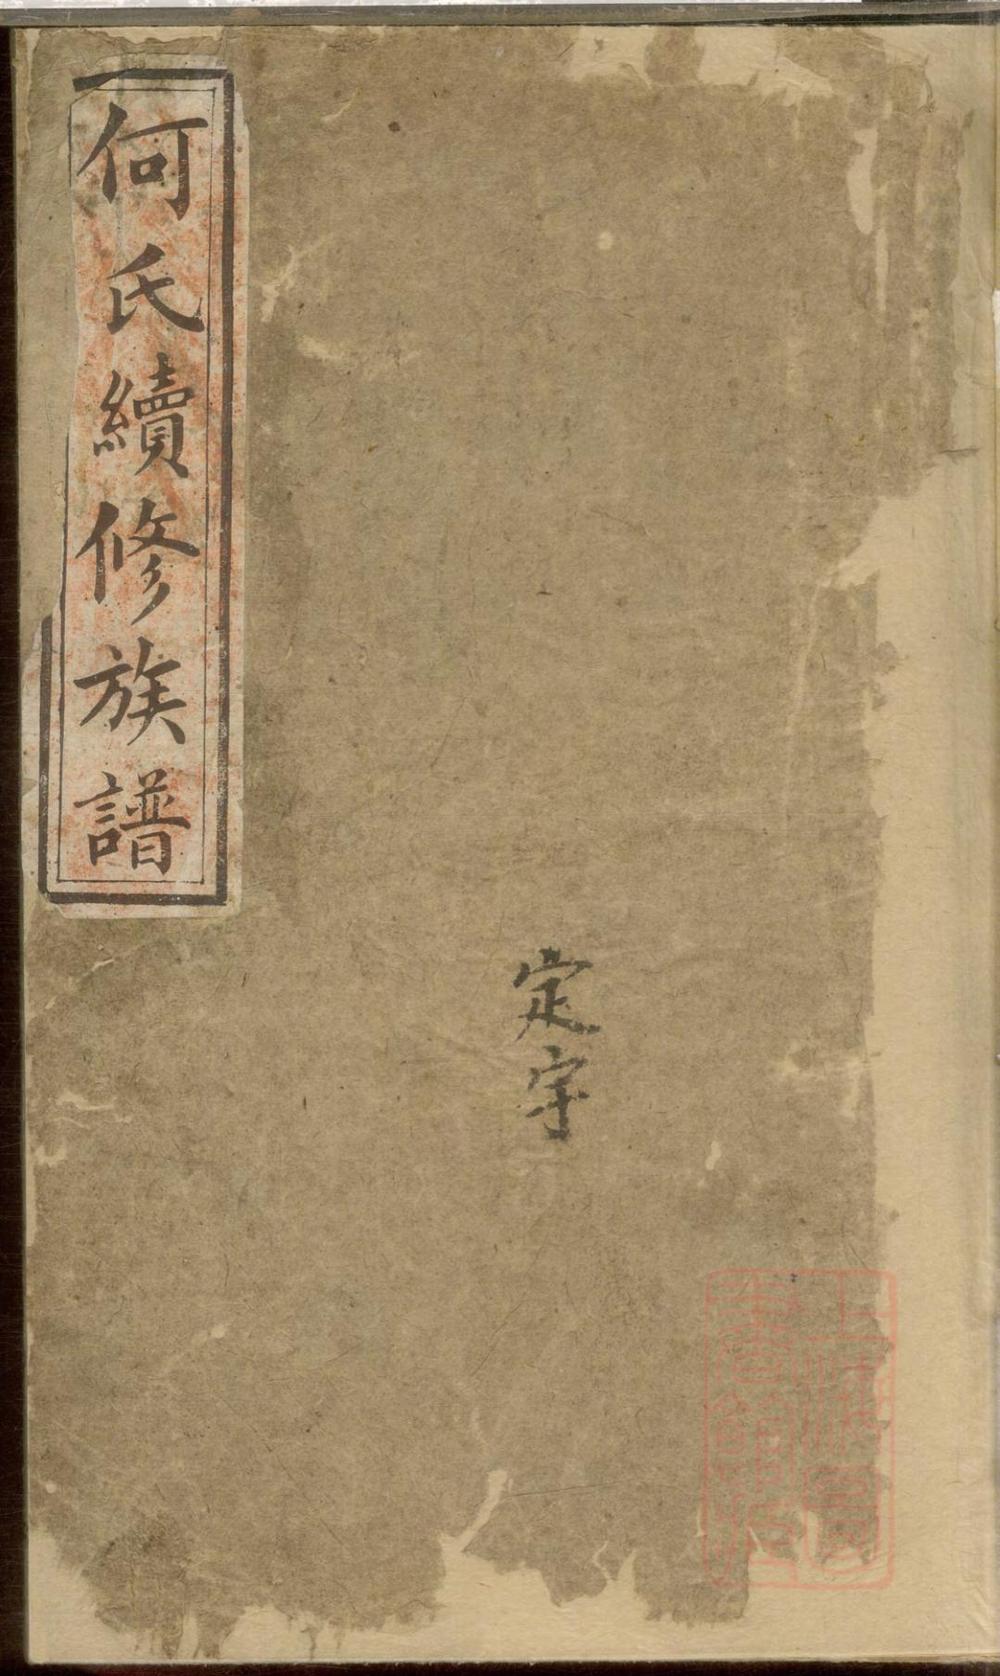 何氏續修族譜
定字
上海圖
書館藏